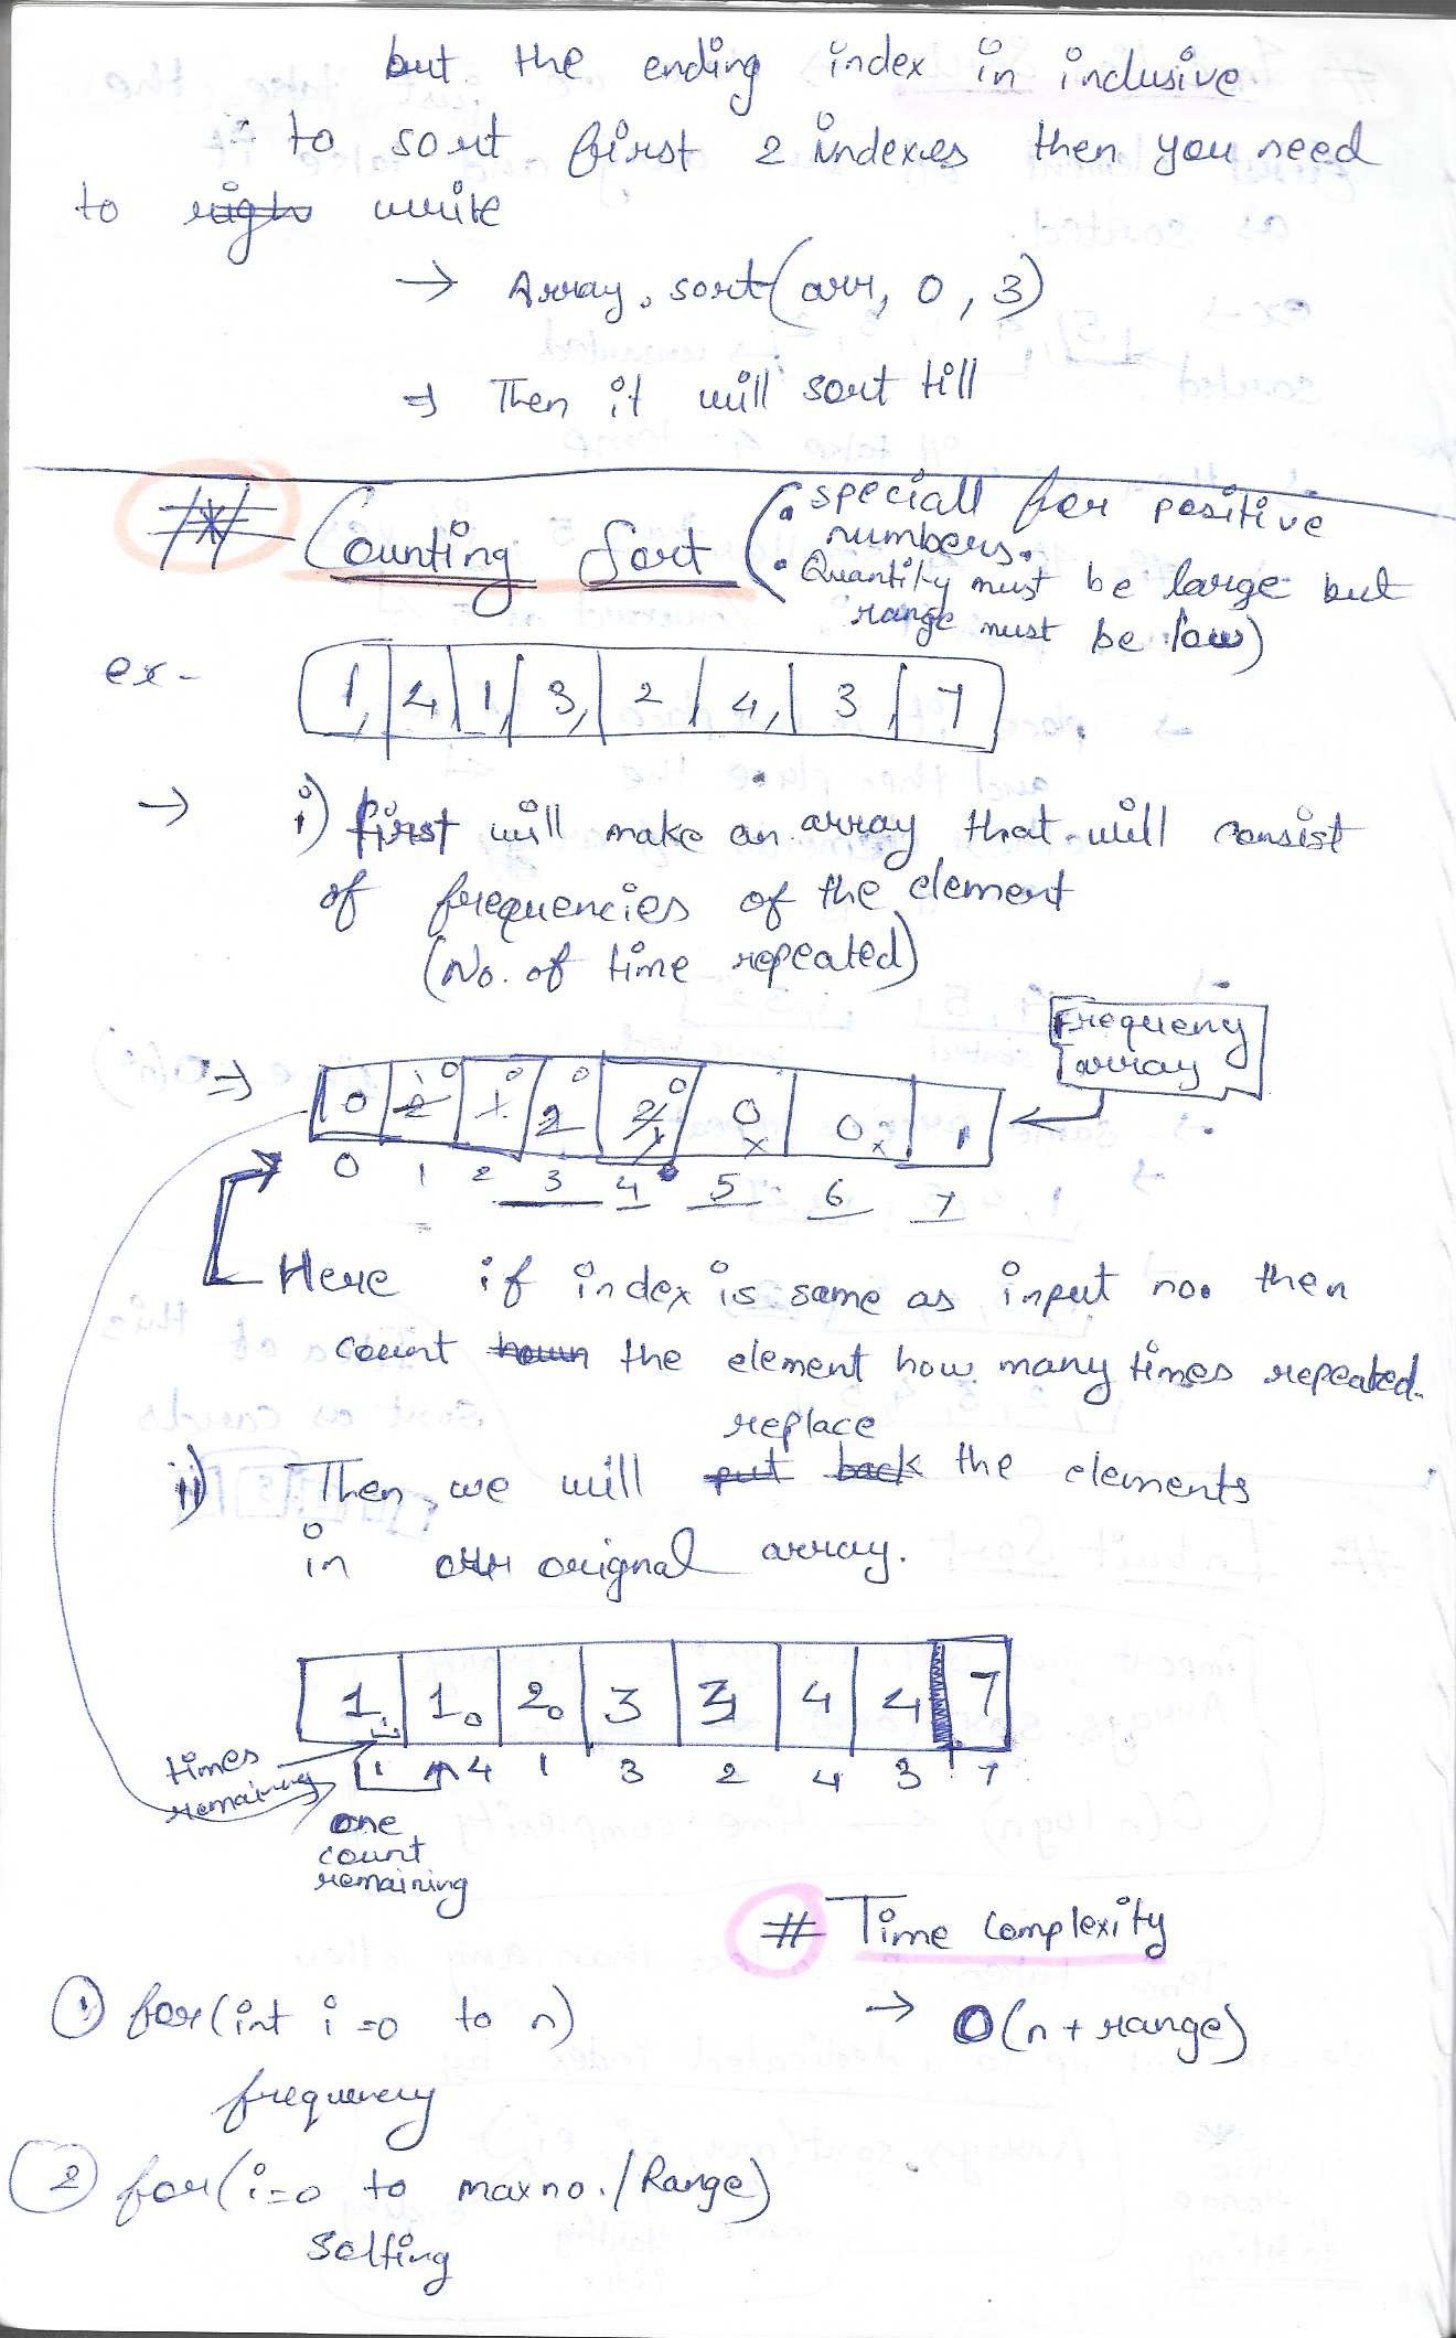 but the ending index in inclusive
∴ to sort first 2 indexes then you need
to write
→ Array.sort(arr, 0, 3)
⇒ Then it will sort till
# Counting Sort (• speciall for positive
numbers.
• Quantity must be large but
range must be low)
ex - 1, 4, 1, 3, 2 4, 3, 7
→ i) first will make an array that will consist
of frequencies of the element
(No. of time repeated)
Frequeny
array
⇒ 0 2 1 2 2 0 0 1
0 1 2 3 4 5 6 7
Here if index is same as input no. then
count the element how many times repeated.
replace
ii) Then we will put back the elements
in our orignal array.
1 1 2 3 3 4 4 7
1 4 1 3 2 4 3 7
times
remaining
one
count
remaining
# Time Complexity
→ O(n + range)
① for(int i=0 to n)
frequency
② for(i=0 to max no./Range)